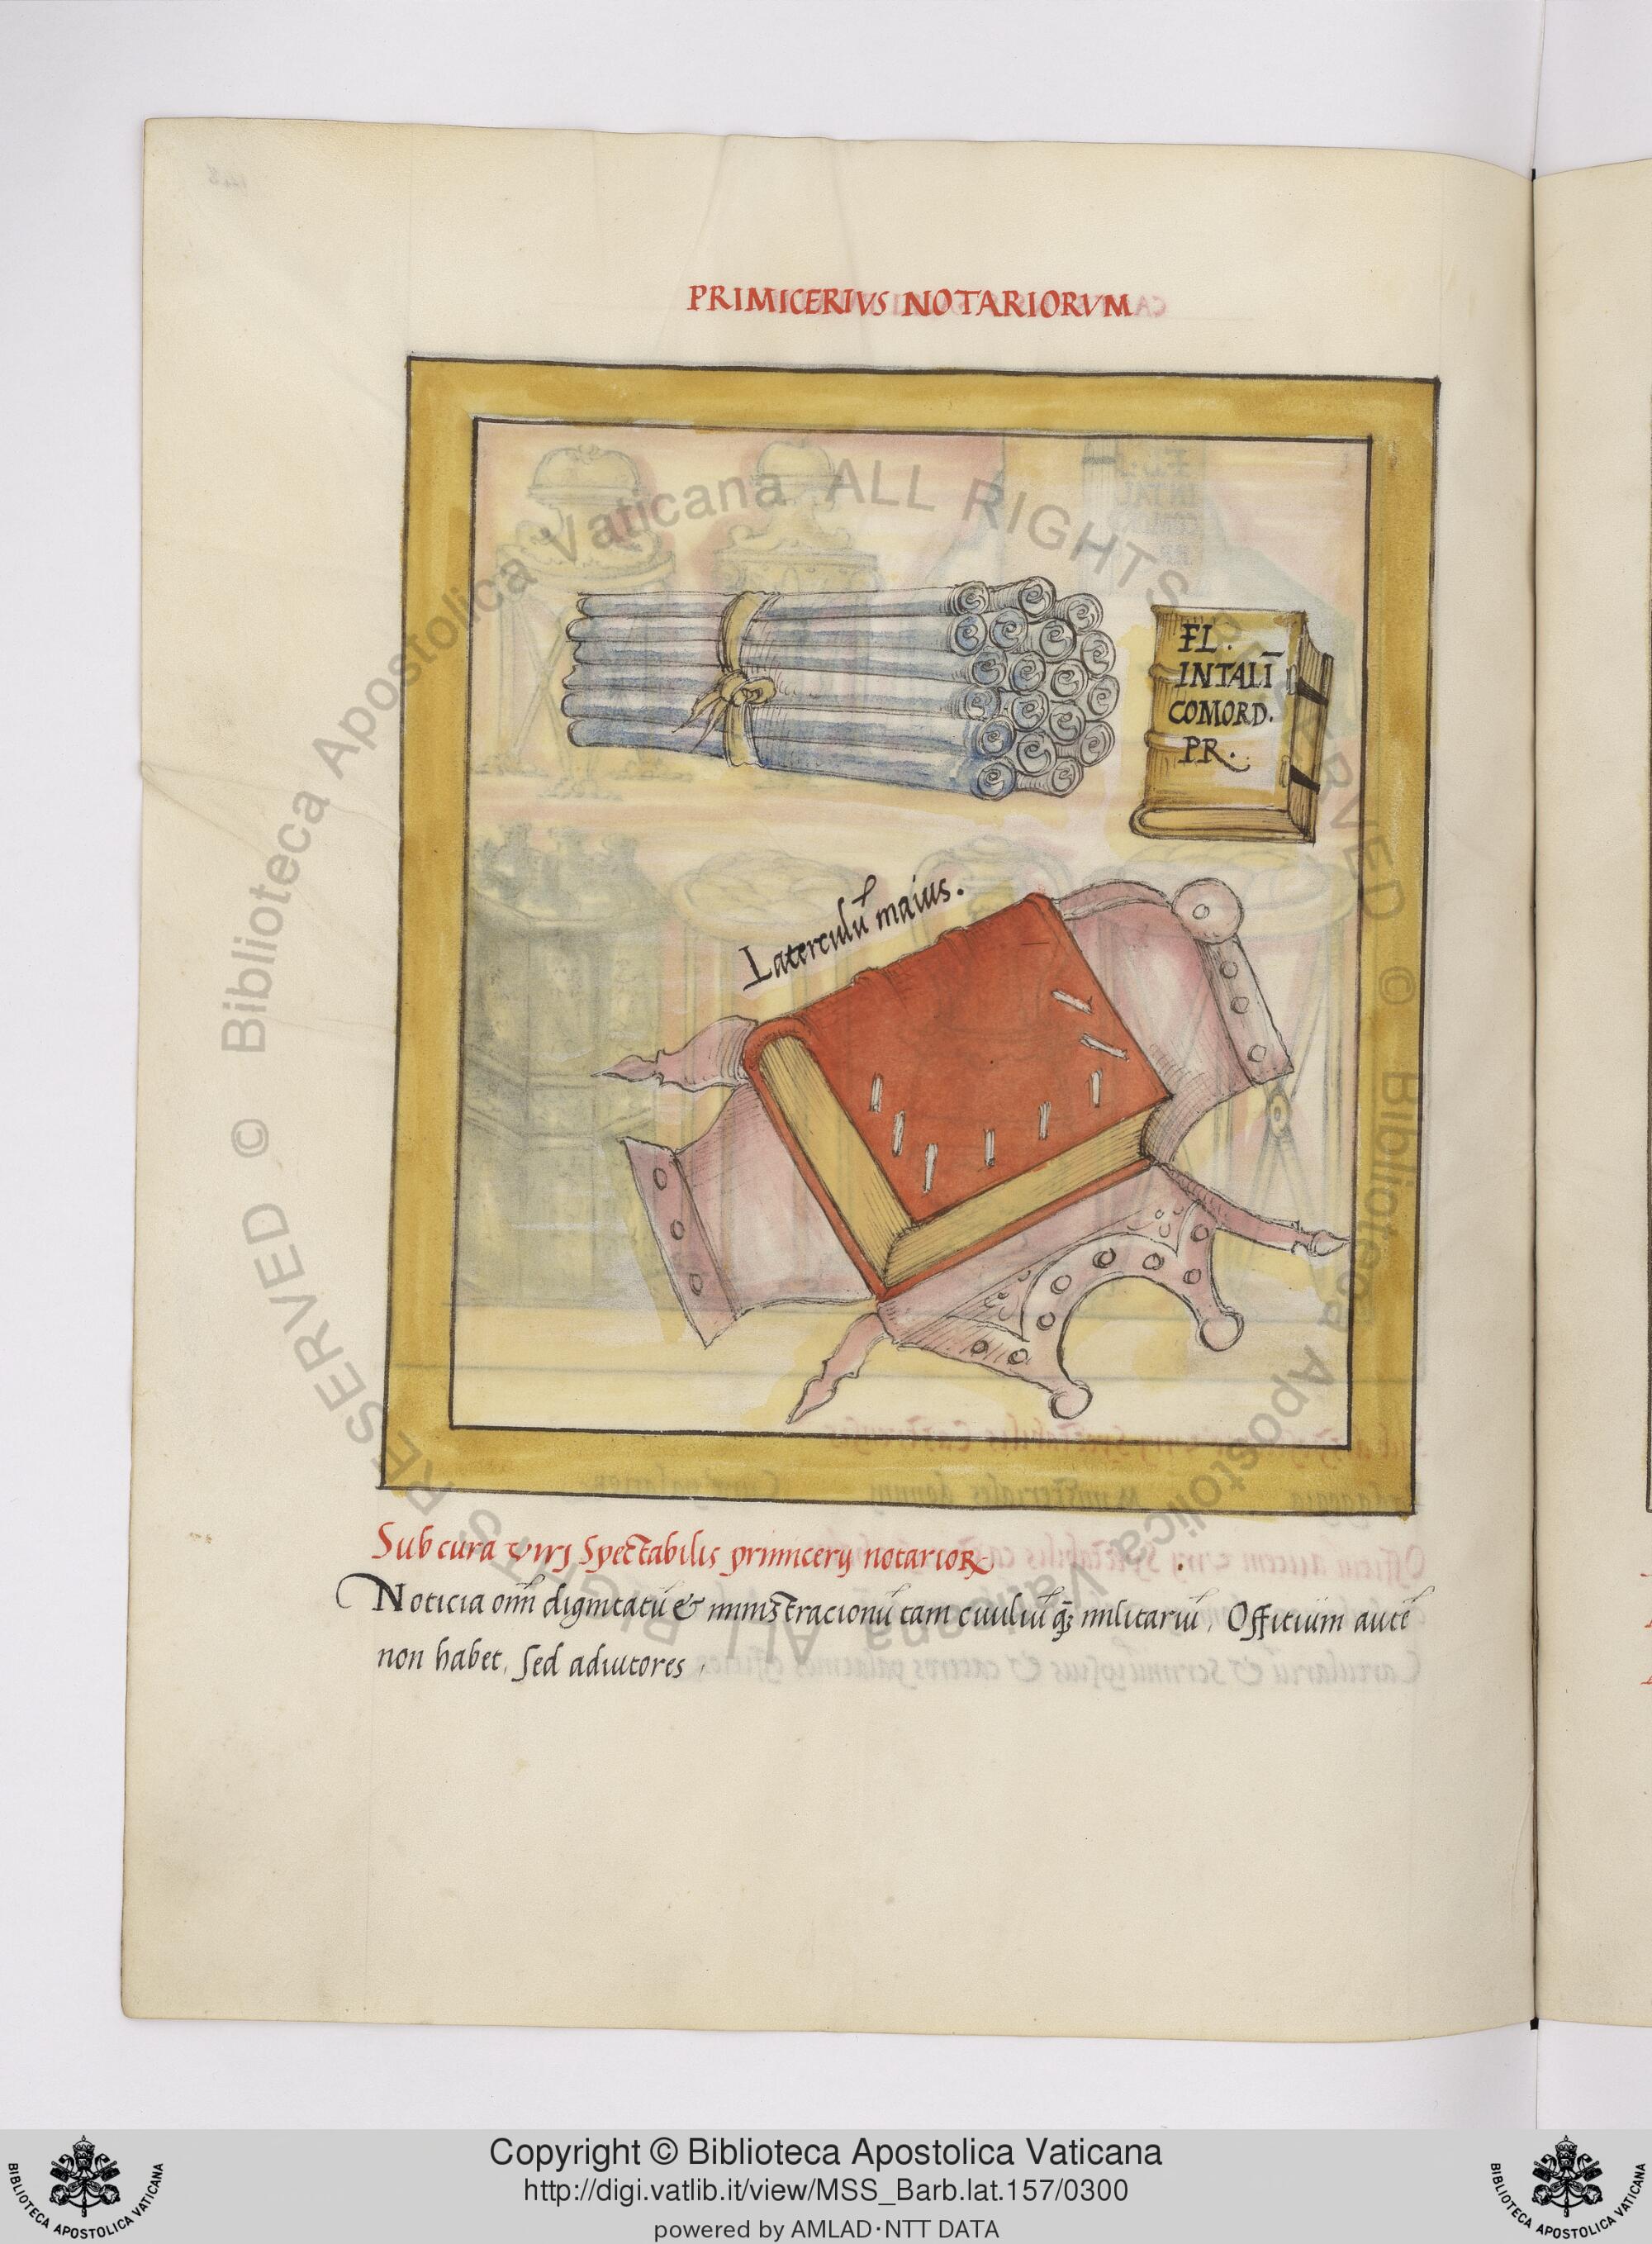 PRIMICERIVS NOTARIORVM
FL.
INTALĪ
COMORD.
PR.
Laterculū maius.
Sub cura viri Spectabilis primicerij notarioꝝ
Noticia oīm dignitatū & ministracionū tam ciuiliū q̄ꝫ militariū, Officium autē
non habet, Sed adiutores,
© Biblioteca Apostolica Vaticana ALL RIGHTS RESERVED © Biblioteca Apostolica Vaticana ALL RIGHTS RESERVED
Copyright © Biblioteca Apostolica Vaticana
http://digi.vatlib.it/view/MSS_Barb.lat.157/0300
powered by AMLAD·NTT DATA
BIBLIOTECA APOSTOLICA VATICANA
BIBLIOTECA APOSTOLICA VATICANA